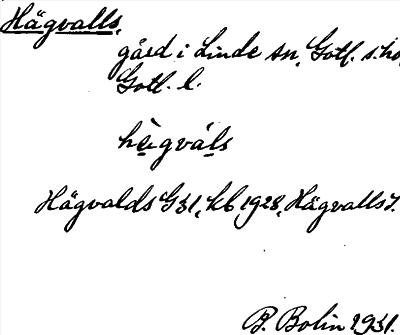 Hägvalls,
gård i Linde sn, Gotl. s.
Gotl. l.
hä̀gváls
Hägvalds G31, kb 1928, Hägvalls J.
B. Bolin 1931.